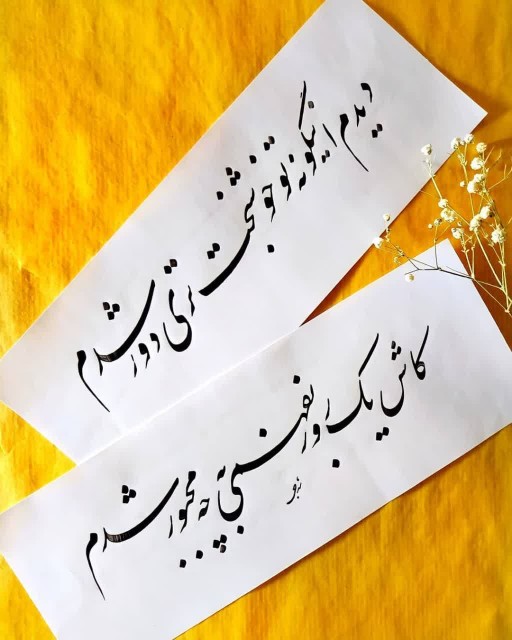 دیدم اینگونه تو خوشبخت تری دور شدم
کاش یک روز بفهمی به چه مجبور شدم